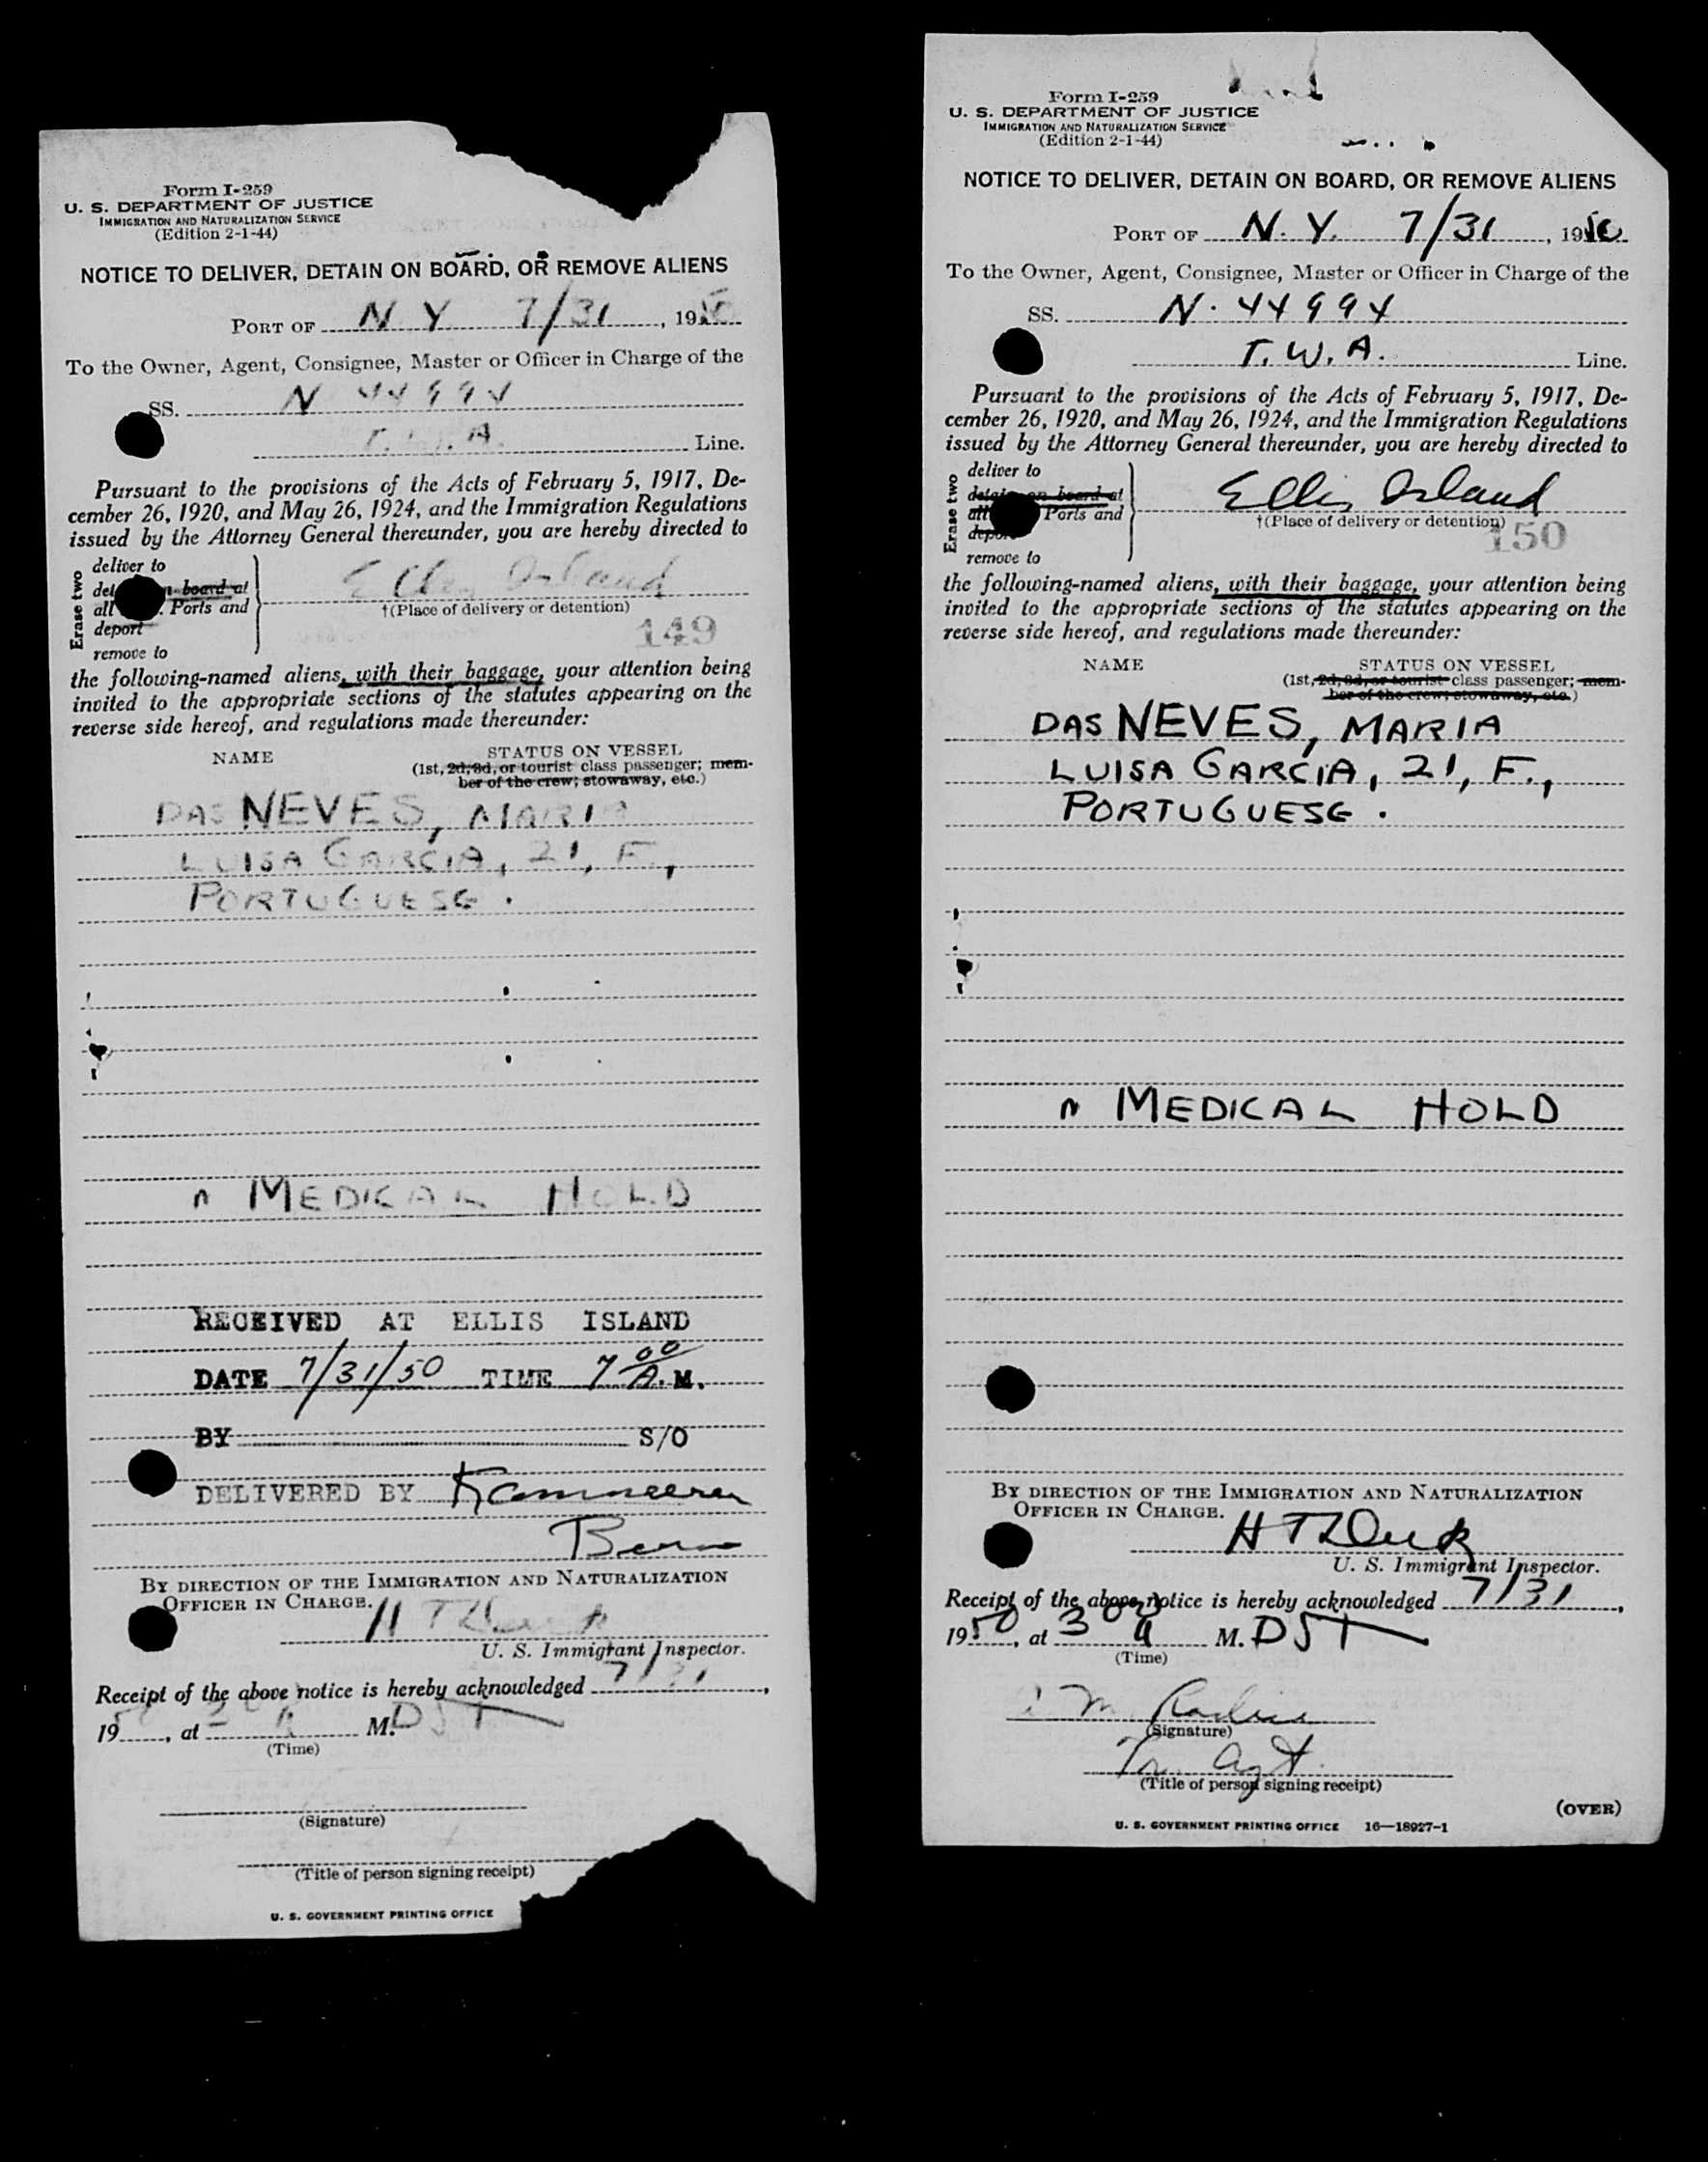 Form I-259
U. S. DEPARTMENT OF JUSTICE
IMMIGRATION AND NATURALIZATION SERVICE
(Edition 2-1-44)
NOTICE TO DELIVER, DETAIN ON BOARD, OR REMOVE ALIENS
PORT OF N Y 7/31, 1950
To the Owner, Agent, Consignee, Master or Officer in Charge of the
SS. N 44994
T. W. A. Line.
Pursuant to the provisions of the Acts of February 5, 1917, De-
cember 26, 1920, and May 26, 1924, and the Immigration Regulations
issued by the Attorney General thereunder, you are hereby directed to
Erase two
deliver to
board at
all Ports and
deport
remove to
Ellis Island
†(Place of delivery or detention)
149
the following-named aliens, with their baggage, your attention being
invited to the appropriate sections of the statutes appearing on the
reverse side hereof, and regulations made thereunder:
NAME STATUS ON VESSEL
(1st, 2d, 3d, or tourist class passenger; mem-
ber of the crew; stowaway, etc.)
DAS NEVES, MARIA
LUISA GARCIA, 21, F.,
PORTUGUESE.
" MEDICAL HOLD
RECEIVED AT ELLIS ISLAND
DATE 7/31/50 TIME 7 00 A.M.
BY S/O
DELIVERED BY
BY DIRECTION OF THE IMMIGRATION AND NATURALIZATION
OFFICER IN CHARGE.
U. S. Immigrant Inspector.
Receipt of the above notice is hereby acknowledged 7/31,
1950, at M. DST
(Time)
(Signature)
(Title of person signing receipt)
U. S. GOVERNMENT PRINTING OFFICE
Form I-259
U. S. DEPARTMENT OF JUSTICE
IMMIGRATION AND NATURALIZATION SERVICE
(Edition 2-1-44)
NOTICE TO DELIVER, DETAIN ON BOARD, OR REMOVE ALIENS
PORT OF N. Y. 7/31, 1950
To the Owner, Agent, Consignee, Master or Officer in Charge of the
SS. N. 44994
T. W. A. Line.
Pursuant to the provisions of the Acts of February 5, 1917, De-
cember 26, 1920, and May 26, 1924, and the Immigration Regulations
issued by the Attorney General thereunder, you are hereby directed to
Erase two
deliver to
detain on board at
all Ports and
deport
remove to
Ellis Island
†(Place of delivery or detention)
150
the following-named aliens, with their baggage, your attention being
invited to the appropriate sections of the statutes appearing on the
reverse side hereof, and regulations made thereunder:
NAME STATUS ON VESSEL
(1st, 2d, 3d, or tourist class passenger; mem-
ber of the crew; stowaway, etc.)
DAS NEVES, MARIA
LUISA GARCIA, 21, F.,
PORTUGUESE.
" MEDICAL HOLD
BY DIRECTION OF THE IMMIGRATION AND NATURALIZATION
OFFICER IN CHARGE.
U. S. Immigrant Inspector.
Receipt of the above notice is hereby acknowledged 7/31,
1950, at 3 00 A M. DST
(Time)
(Signature)
Tr. Agt.
(Title of person signing receipt)
(OVER)
U. S. GOVERNMENT PRINTING OFFICE 16—18927-1